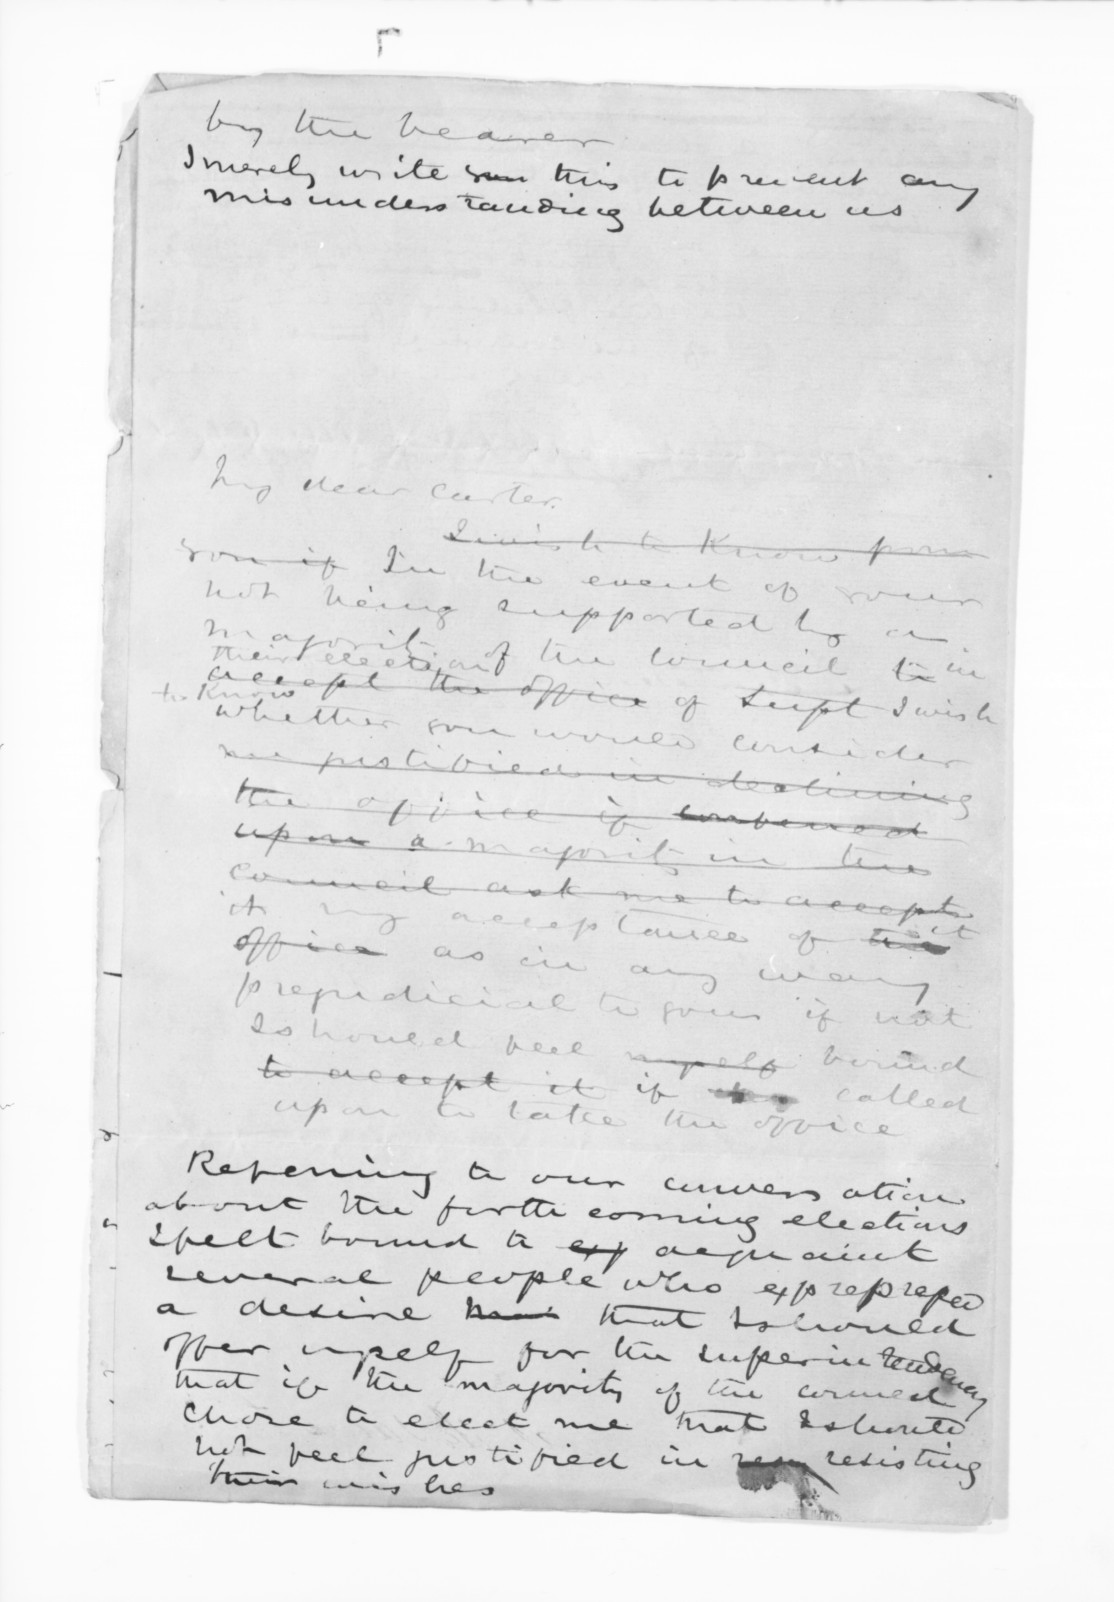 by the bearer
I merely write this to prevent any
misunderstanding between us
My dear Carter.
I wish to Know from
you if In the event of your
not being supported by a
majority of the Council to in
their election
accept the office of Supt I wish
to Know
whether you would consider
me justified in declining
the office if
upon a majority in the
council ask me to accept
it my acceptance of the it
office as in any way
prejudicial to yours if not
I should feel myself bound
to accept it if called
upon to take the office
Referring to our conversation
about the forth coming elections
I felt bound to exp acquaint
several people who expressed
a desire that I should
offer myself for the superintendency
that if the majority of the council
chose to elect me that I should
not feel justified in resisting
their wishes